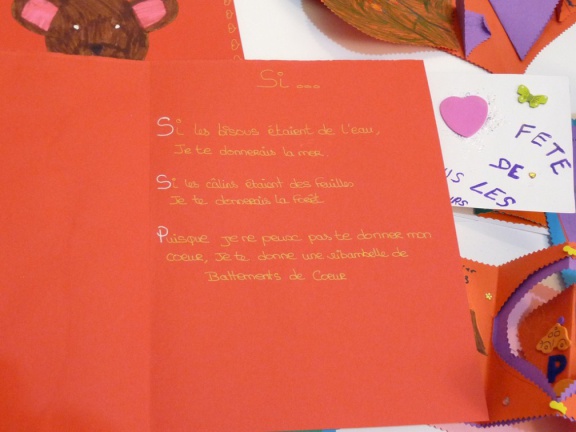 Si ...
Si les bisous étaient de l'eau,
Je te donnerais la mer.
Si les câlins étaient des feuilles
Je te donnerais la Forêt
Puisque je ne peux pas te donner mon
coeur, Je te donne une ribambelle de
Battements de Coeur
FETE
DE
LES
P